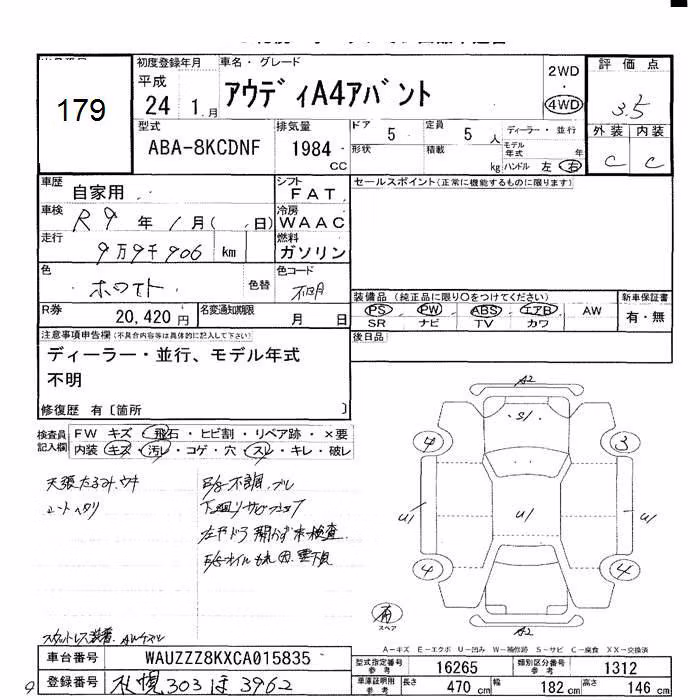 179
初度登録年月 車名・グレード
平成
24 1月
アウディA4アバント
2WD
・
4WD
評価点
3.5
外装 内装
C C
型式
ABA-8KCDNF
排気量
1984 CC
ドア 5
定員 5 人
ディーラー・並行
形状
積載 kg
モデル年式 年
ハンドル 左・右
車歴 自家用
シフト FAT
セールスポイント(正常に機能するものに限ります)
車検 R9年1月( 日)
冷房 WAAC
走行 9万9千906 km
燃料 ガソリン
色 ホワイト 色替
色コード 不明
R券 20,420円
名変通知期限 月 日
装備品 (純正品に限り○をつけてください)
新車保証書
PS PW ABS エアB AW
有・無
SR ナビ TV カワ
後日品
注意事項申告欄(不具合内容等は具体的に記入して下さい)
ディーラー・並行、モデル年式
不明
修復歴 有〔箇所 〕
検査員記入欄
FW キズ・飛石・ヒビ割・リペア跡・×要
内装 キズ・汚レ・コゲ・穴・スレ・キレ・破レ
天張たるみ、ウキ
シートヘタリ
E/g不調、ブレ
左 ドラ 開かず未検査
E/gオイルもれ 下見
スタットレス装着
A2
S1
4 3
U1 U1 U1
4 4
A2
有
スペア
A-キズ E-エクボ U-凹み W-補修跡 S-サビ C-腐食 XX-交換済
車台番号 WAUZZZ8KXCA015835
登録番号 札幌303ほ3962
型式指定番号参考 16265
類別区分番号参考 1312
車庫証明用参考 長さ 470 cm 幅 182 cm 高さ 146 cm